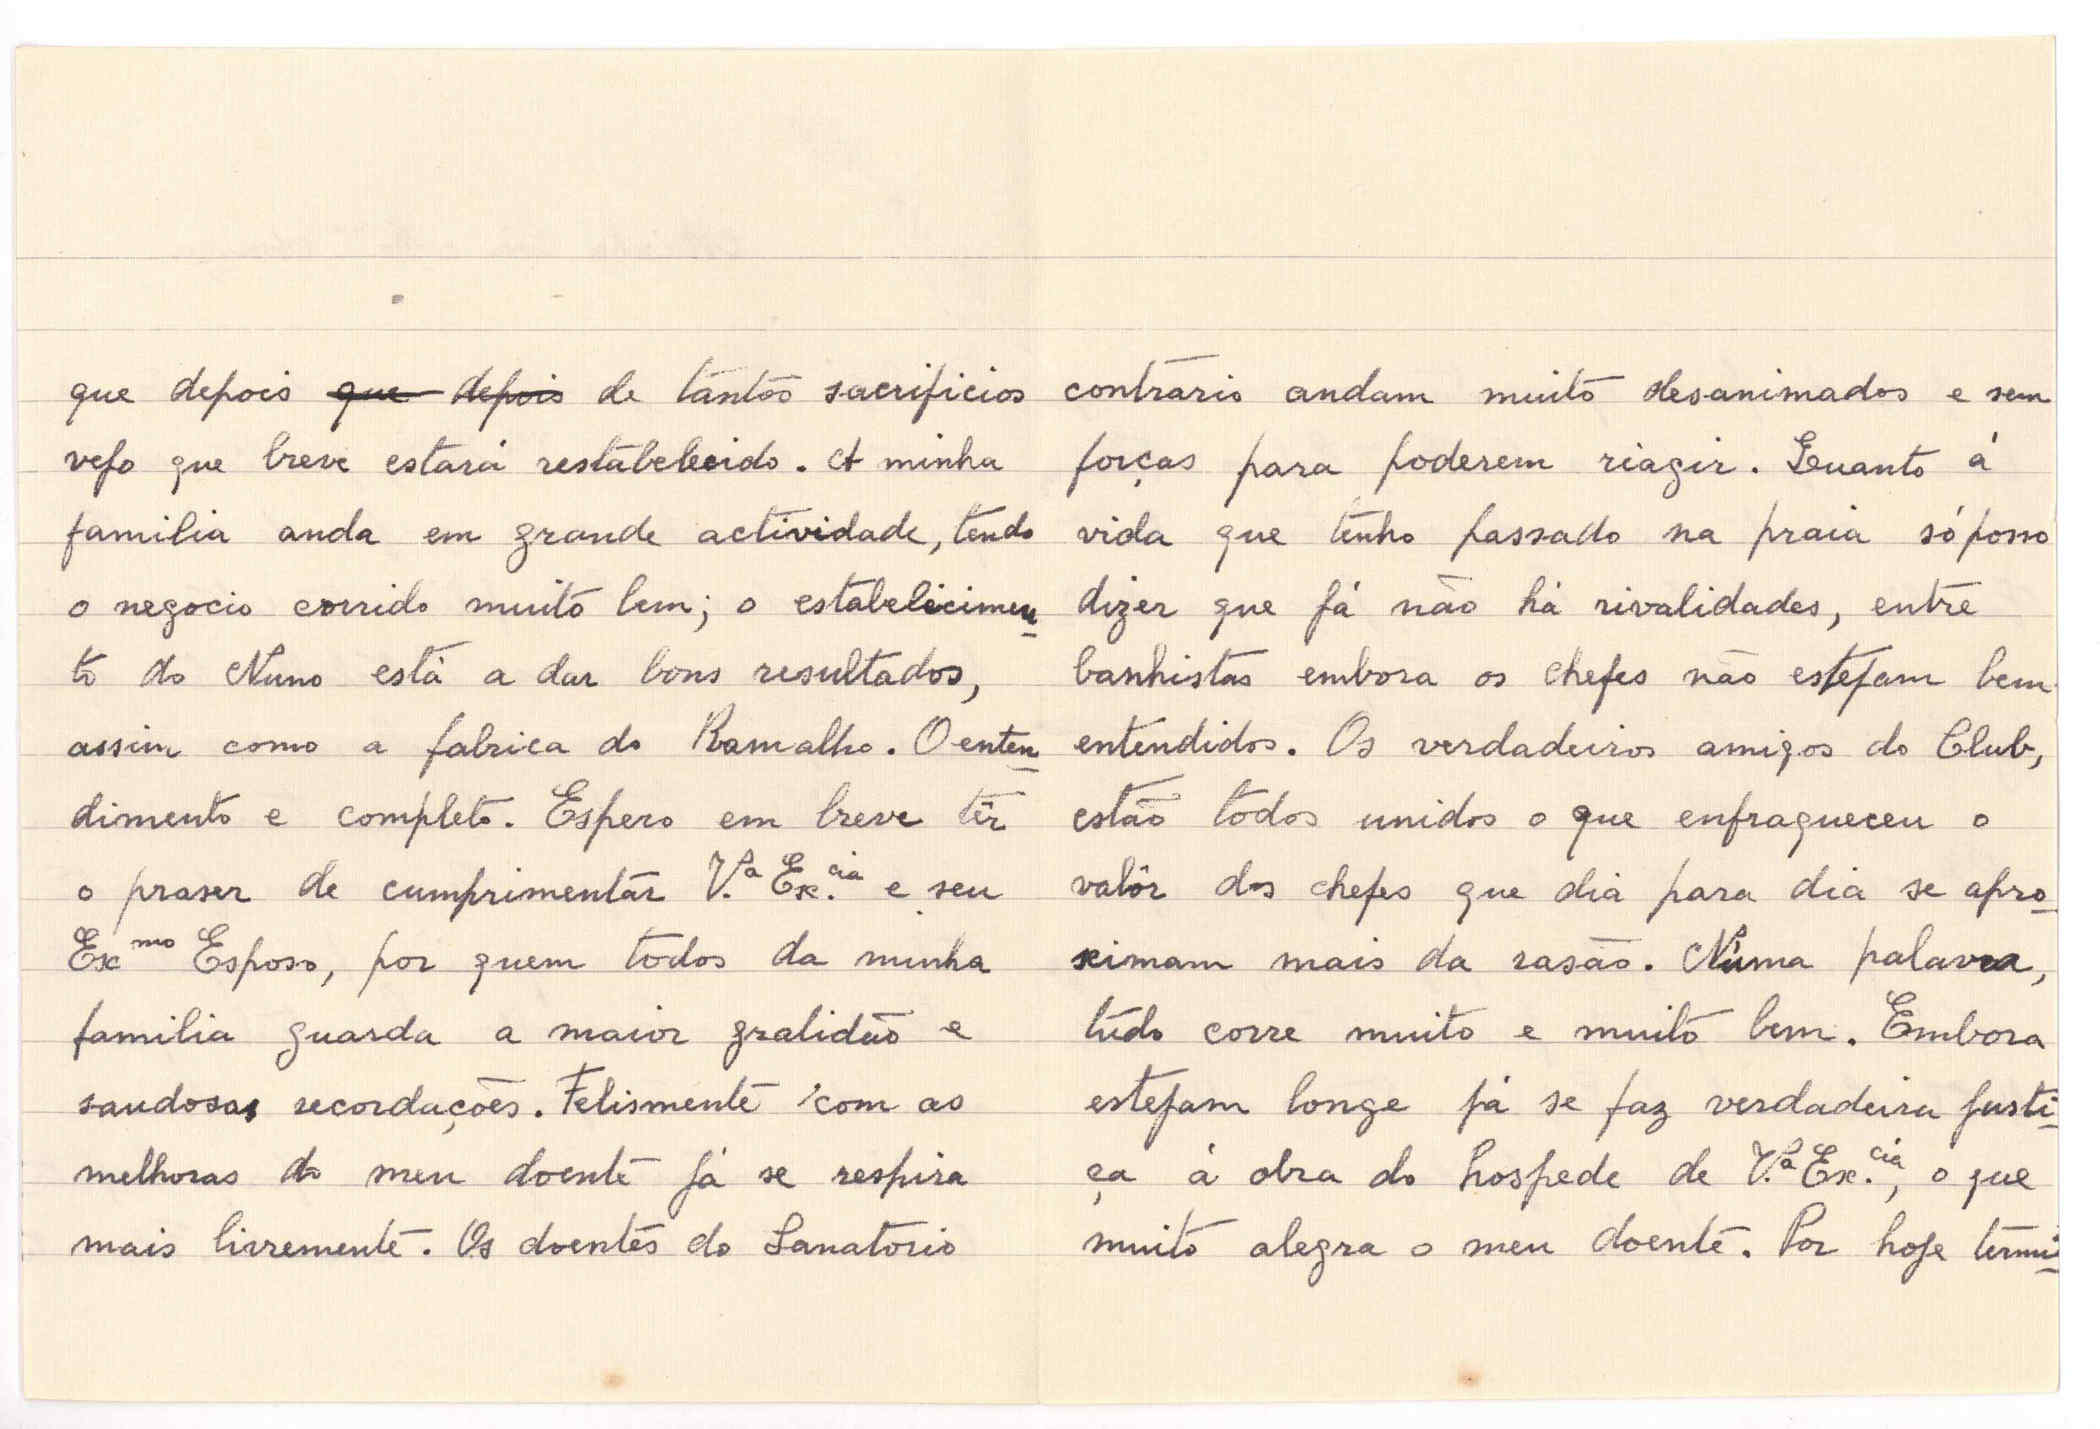 que depois ~~que depois~~ de tantos sacrificios
vejo que breve estará restabelecido. A minha
familia anda em grande actividade, tendo
o negocio corrido muito bem; o estabelicimen-
to do Nuno está a dar bons resultados,
assim como a fabrica do Ramalho. O enten-
dimento e completo. Espero em breve têr
o praser de cumprimentar V.ª Ex.cia e seu
Exmo Esposo, por quem todos da minha
familia guarda a maior gratidão e
saudosas recordações. Felismente com as
melhoras do meu doente já se respira
mais livremente. Os doentes do Sanatorio
contrario andam muito desanimados e sem
forças para poderem riagir. Quanto á
vida que tenho passado na praia só posso
dizer que já não há rivalidades, entre
banhistas embora os chefes não estejam bem
entendidos. Os verdadeiros amigos do Club,
estão todos unidos o que enfraqueceu o
valôr dos chefes que dia para dia se apro-
ximam mais da rasão. Numa palavra,
tudo corre muito e muito bem. Embora
estejam longe já se faz verdadeira justi-
ça á obra do hospede de V.ª Ex.cia, o que
muito alegra o meu doente. Por hoje termi-